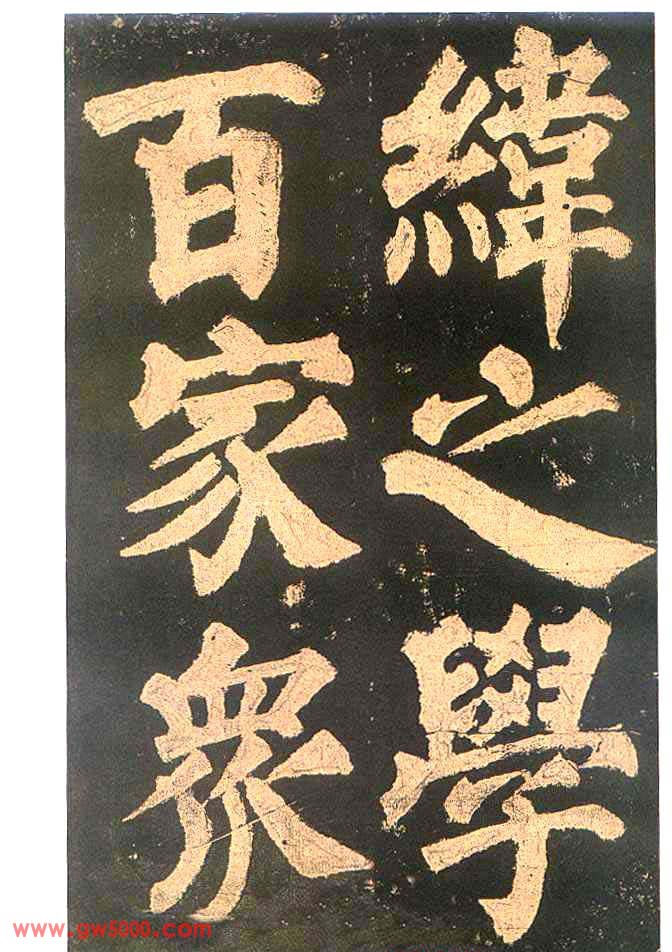 緯之學
百家衆
www.gw5000.com